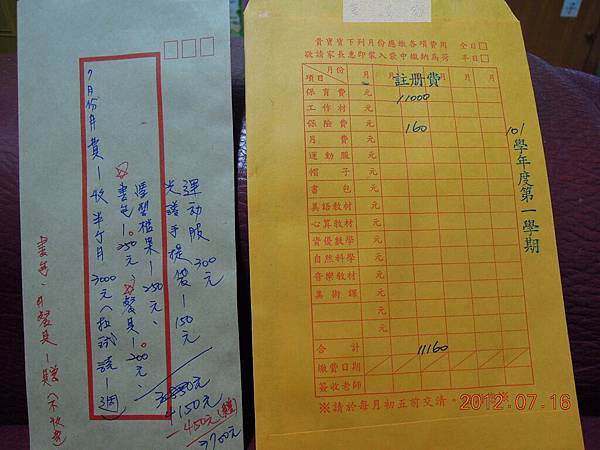 7月份月費-收半个月 3000元(扣試讀一週)
書包-250元、餐具-200元、
學習檔案-250元、
光譜手提袋-150元
運动服 300元
4150元
-450元(贈)
3700元
書包、餐具-贈(不收費)
貴寶寶下列月份應繳各項費用 全日□
敬請家長惠印蒙入袋中繳納為荷 半日□
項目 月份 月 月 月 月 月 月
註冊費
保育費 元 11000
工作材 元
保險費 元 160
月費 元
運動服 元
帽子 元
書包 元
美語教材 元
心算教材 元
資優數學 元
自然科學 元
音樂教材 元
美術課 元
元
元
合計 11160
繳費日期
簽收老師
※請於每月初五前交清
101學年度第一學期
2012.07.16